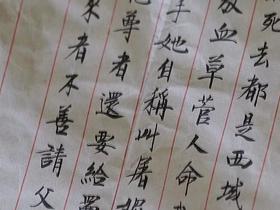 死去都是西域
放血草菅人命
手她自稱叫屠
尊者還要給
者不善請父